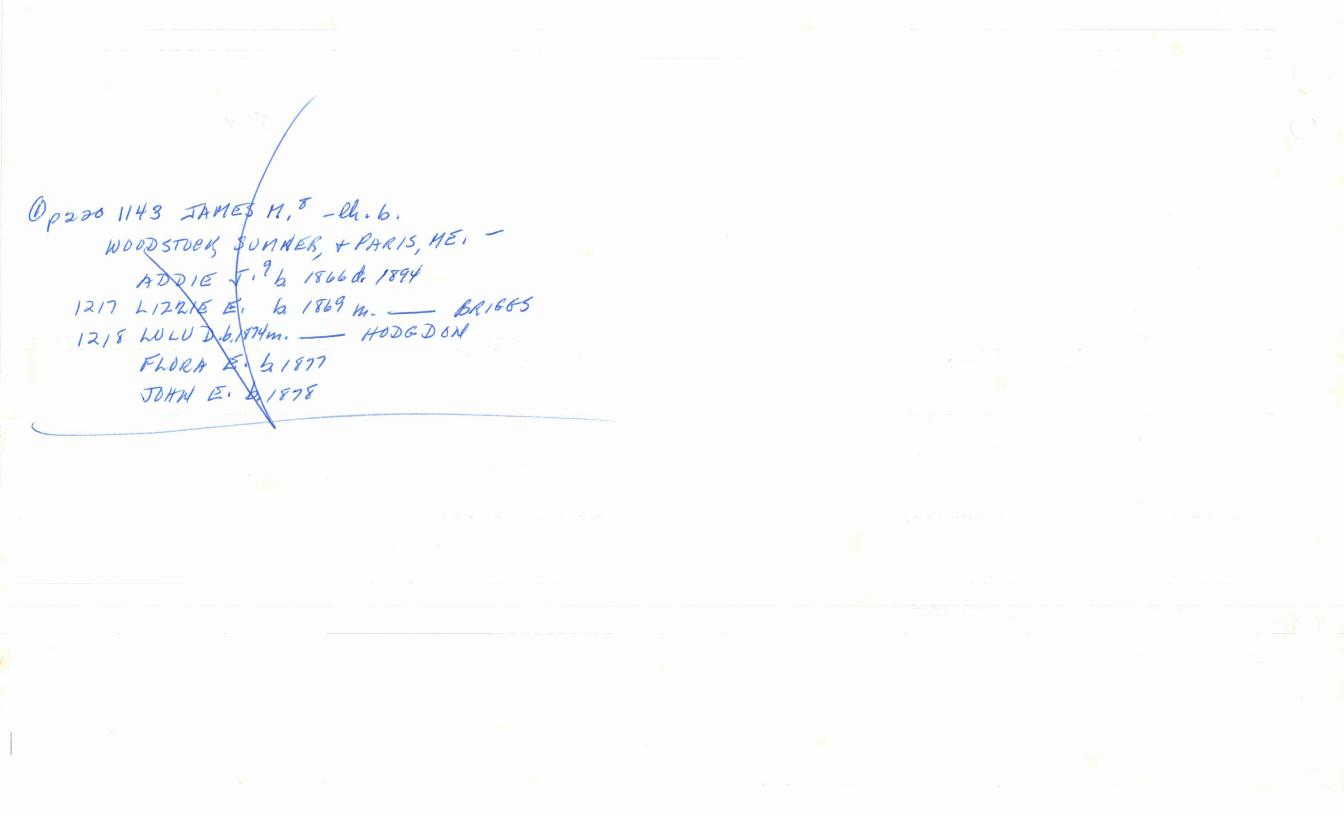 ① p220 1143 JAMES M.⁸ - ch. b.
WOODSTOCK, SUMNER, + PARIS, ME. -
ADDIE J.⁹ b. 1866 d. 1894
1217 LIZZIE E. b. 1869 m. —— BRIGGS
1218 LULU D. b. 1874 m. —— HODGDON
FLORA E. b. 1877
JOHN E. b. 1878